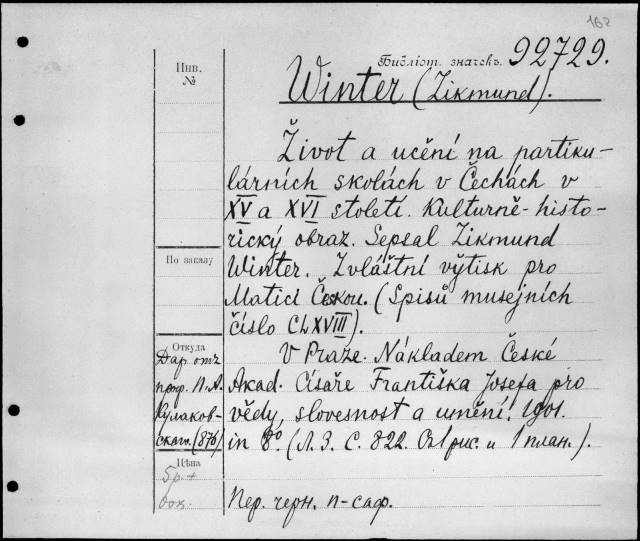 162
Библіот. значекъ. 92729.
Инв.
№
Winter (Zikmund).
Život a učení na partiku-
lárních skolách v Čechách v
XV a XVI století. Kulturně-histo-
rický obraz. Sepsal Zikmund
По заказу
Winter. Zvláštní výtisk pro
Matici Českou. (Spisů musejních
číslo CLXVIII).
Откуда
V Praze. Nákladem České
Даръ отъ
проф. П. А.
Кулаков-
скаго. (876)
Akad. Císaře Františka Josefa pro
vědy, slovesnost a umění. 1901.
in 8° (Л. З. С. 822. Съ 1 рис. и 1 план.).
Цѣна
бр. +
Пер. черн. п-саф.